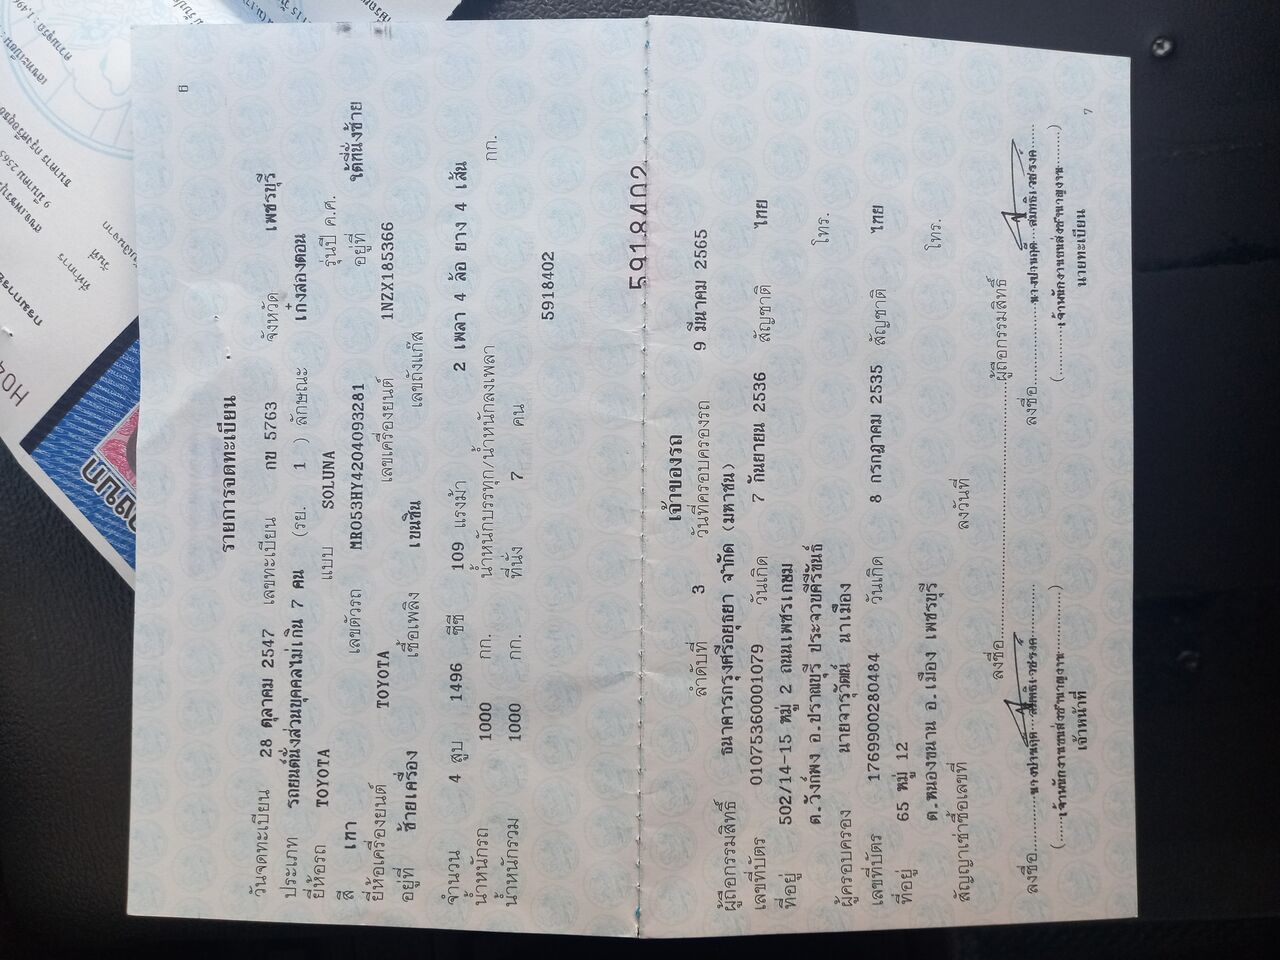 6
รายการจดทะเบียน
วันจดทะเบียน 28 ตุลาคม 2547 เลขทะเบียน กข 5763 จังหวัด เพชรบุรี
ประเภท รถยนต์นั่งส่วนบุคคลไม่เกิน 7 คน (รย. 1 ) ลักษณะ เก๋งสองตอน
ยี่ห้อรถ TOYOTA แบบ SOLUNA รุ่นปี ค.ศ.
สี เทา เลขตัวรถ MR053HY4204093281 อยู่ที่ ใต้ที่นั่งซ้าย
ยี่ห้อเครื่องยนต์ TOYOTA เลขเครื่องยนต์ 1NZX185366
อยู่ที่ ซ้ายเครื่อง เชื้อเพลิง เบนซิน เลขถังแก๊ส
จำนวน 4 สูบ 1496 ซีซี 109 แรงม้า 2 เพลา 4 ล้อ ยาง 4 เส้น
น้ำหนักรถ 1000 กก. น้ำหนักบรรทุก/น้ำหนักลงเพลา กก.
น้ำหนักรวม 1000 กก. ที่นั่ง 7 คน
5918402
5918402
เจ้าของรถ
ลำดับที่ 3 วันที่ครอบครองรถ 9 มีนาคม 2565
ผู้ถือกรรมสิทธิ์ ธนาคารกรุงศรีอยุธยา จำกัด (มหาชน)
เลขที่บัตร 0107536001079 วันเกิด 7 กันยายน 2536 สัญชาติ ไทย
ที่อยู่ 502/14-15 หมู่ 2 ถนนเพชรเกษม
ต.วังก์พง อ.ปราณบุรี ประจวบคีรีขันธ์ โทร.
ผู้ครอบครอง นายจารุวัฒน์ นาเมือง
เลขที่บัตร 1769900280484 วันเกิด 8 กรกฎาคม 2535 สัญชาติ ไทย
ที่อยู่ 65 หมู่ 12
ต.หนองขนาน อ.เมือง เพชรบุรี โทร.
สัญญาเช่าซื้อเลขที่ ลงวันที่
ลงชื่อ ผู้ถือกรรมสิทธิ์
ลงชื่อ ลงชื่อ
(เจ้าพนักงานขนส่งชำนาญงาน) (เจ้าพนักงานขนส่งชำนาญงาน)
เจ้าหน้าที่ นายทะเบียน
7